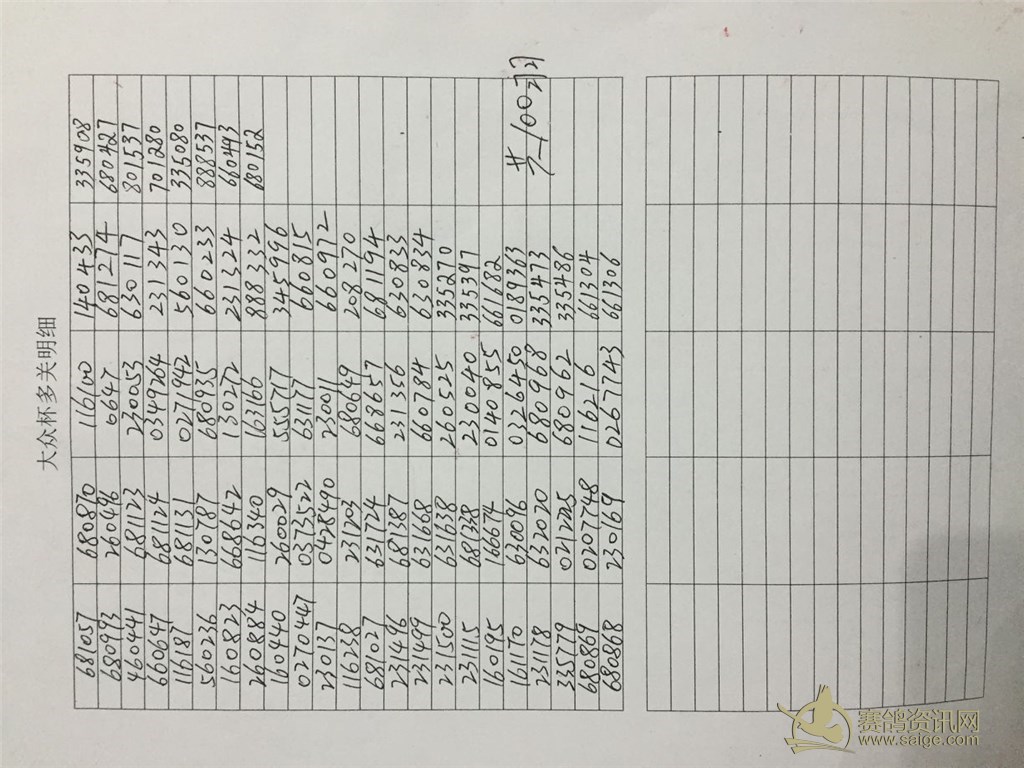 大众杯多关明细
681057 680870 116100 140433 335908
680993 260496 6647 681274 680427
460441 681123 230053 630117 801537
660647 681124 0349264 231343 701280
116181 681131 0271942 560130 335080
560236 130787 680935 660233 888537
160823 668642 130272 231324 660493
260884 116340 163166 888332 680152
160440 260029 555717 345996
0270447 0573522 631197 660815
230137 0428490 230011 660972
116258 231204 680649 208270
681027 631724 668657 681194
231496 681387 231356 630833
231499 631668 660784 630834
231500 631638 260525 335270
231115 681338 230040 335397
160195 166674 0140855 661682
161170 630096 0326450 0189363
231118 632020 680968 335473
235779 021205 680962 335486
680869 0207748 116216 661304
680868 230169 0267743 661306
共100羽
赛鸽资讯网
www.saige.com